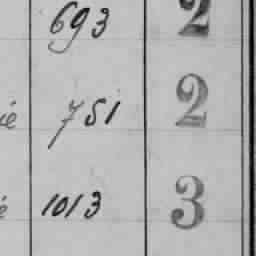 693 2
ié 751 2
é 1013 3